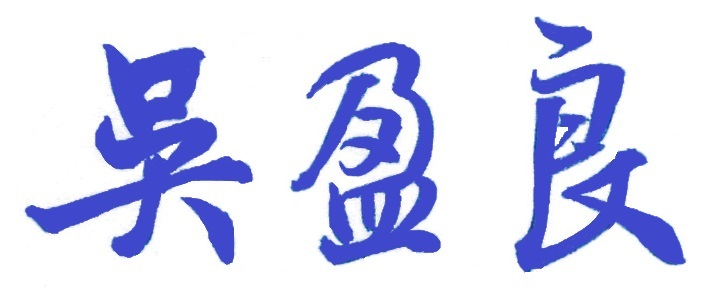 吳盈良